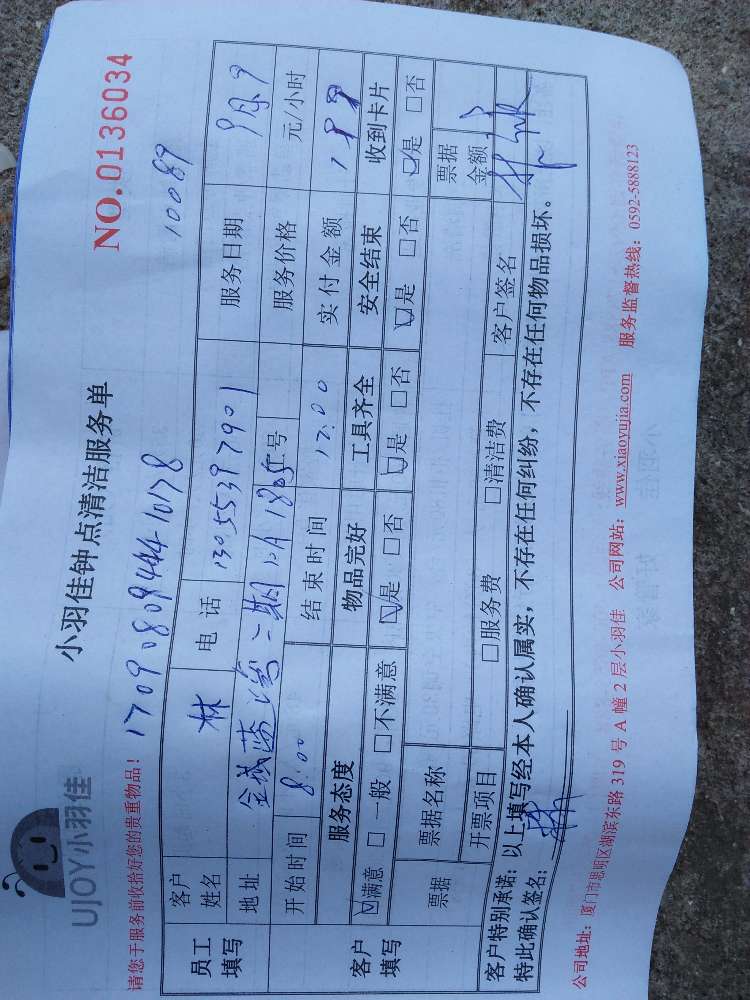 UJOY小羽佳
小羽佳钟点清洁服务单
NO.0136034
请您于服务前收拾好您的贵重物品！
17090809444-10178
10089
员工填写
客户姓名 林 电话 13055397901 服务日期 9月9
地址 金域蓝湾二期 1805号 服务价格 元/小时
开始时间 8:00 结束时间 12:00 实付金额
客户填写
服务态度 物品完好 工具齐全 安全结束 收到卡片
☑满意 □一般 □不满意 ☑是 □否 ☑是 □否 ☑是 □否 ☑是 □否
票据 票据名称 票据金额
开票项目 □服务费 □清洁费 客户签名
客户特别承诺：以上填写经本人确认属实，不存在任何纠纷，不存在任何物品损坏。
特此确认签名：
公司地址：厦门市思明区湖滨东路 319 号 A 幢 2 层小羽佳 公司网站：www.xiaoyujia.com 服务监督热线：0592-5888123